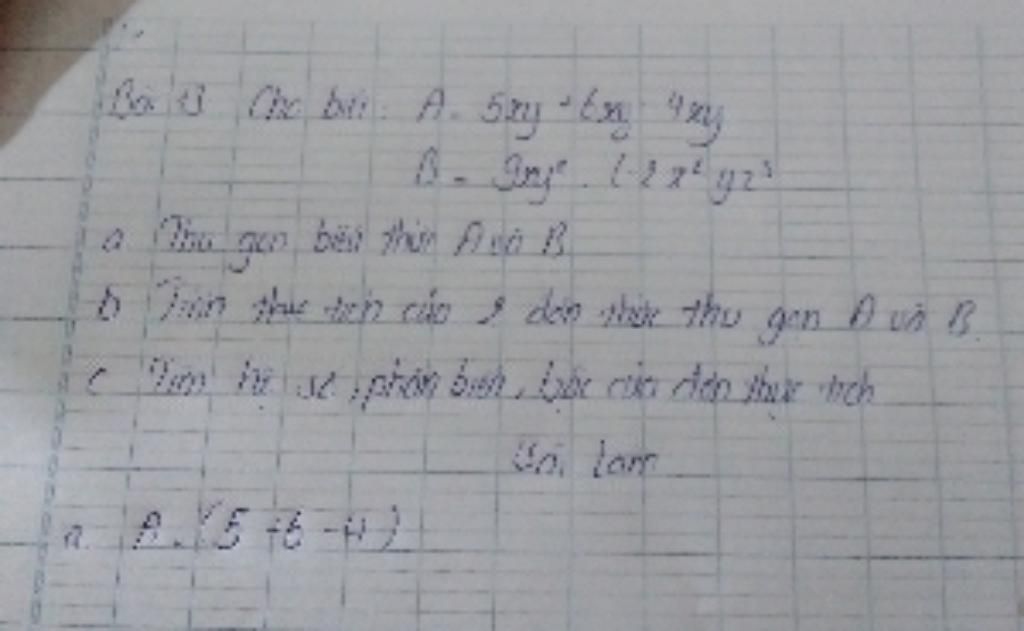 Bài 13 Cho biết: A = 5xy + 6xy - 4xy
B = 9xy². (-2x²yz³
a Thu gọn biểu thức A và B
b Tính thức tích của 2 đơn thức thu gọn A và B
c Tìm hệ số, phần biến, bậc của đơn thức tích
Bài làm
a. A = (5 + 6 - 4)